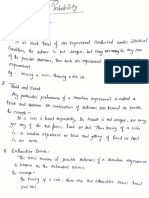 Probability
If in each trial of an experiment conducted under identical
condition, the outcome is not unique, but may be any one
of the possible outcomes, then such an experiment
experiment
Eg: tossing a coin, throwing a die etc.
2. Trial and Event
Any particular performance of a random experiment is called a
trial and outcome or combination of outcomes are termed as events.
for example -
If a coin is tossed repeatedly, the result is not unique, we may get
any of the two faces, head or tail. Thus tossing of a coin
is a random experiment or trial and getting of head or tail
is an event.
3. Exhaustive Events:
The total number of possible outcomes of a random experiment
is known as the exhaustive events.
for example -
In tossing of a coin, there are two exhaustive cases, head
and tail.